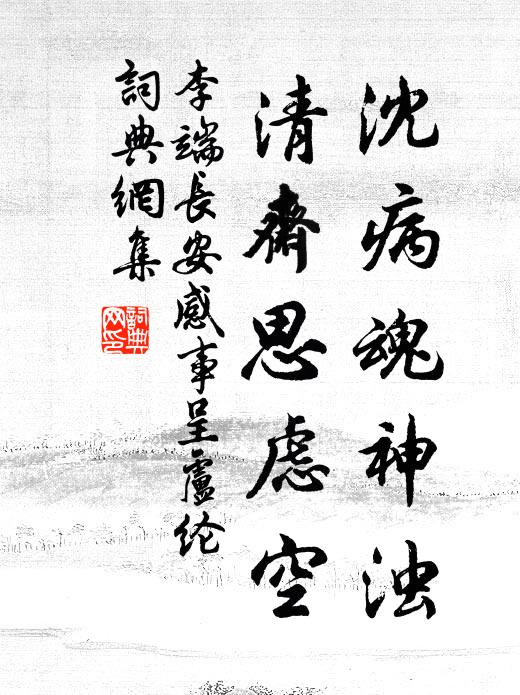 沈病魂神浊
清齋思虑空
李端長安感事呈盧纶
詞典網集
詞典
网印